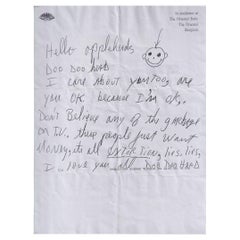 In residence at
The Oriental Suite
The Oriental
Bangkok
Hello appleheads
Doo Doo head
I care about you too, are
you OK because I'm ok,
Don't Believe any of the garbage
on TV. these people just want
Money, its all extortion, lies, lies,
I love you all Doo Doo Head